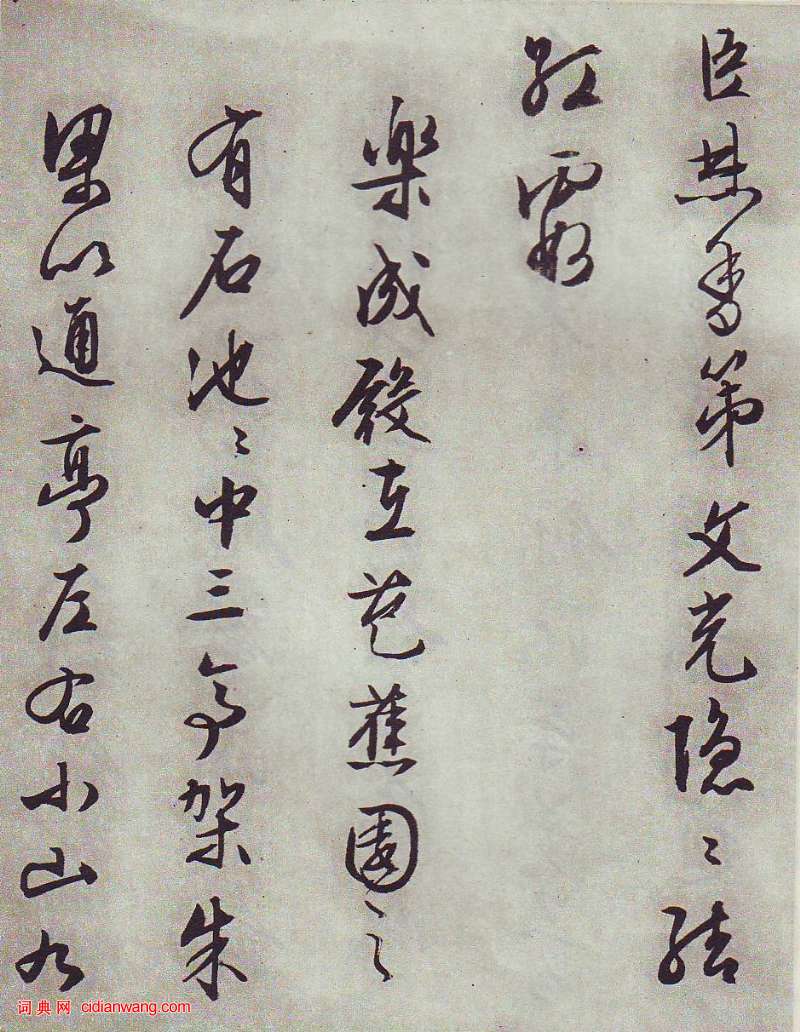 臣焚香第文光隐〻結
紅霞
樂成殿在芭蕉園之
有石池〻中三亭架朱
梁以通亭左右小山九
词典网 cidianwang.com